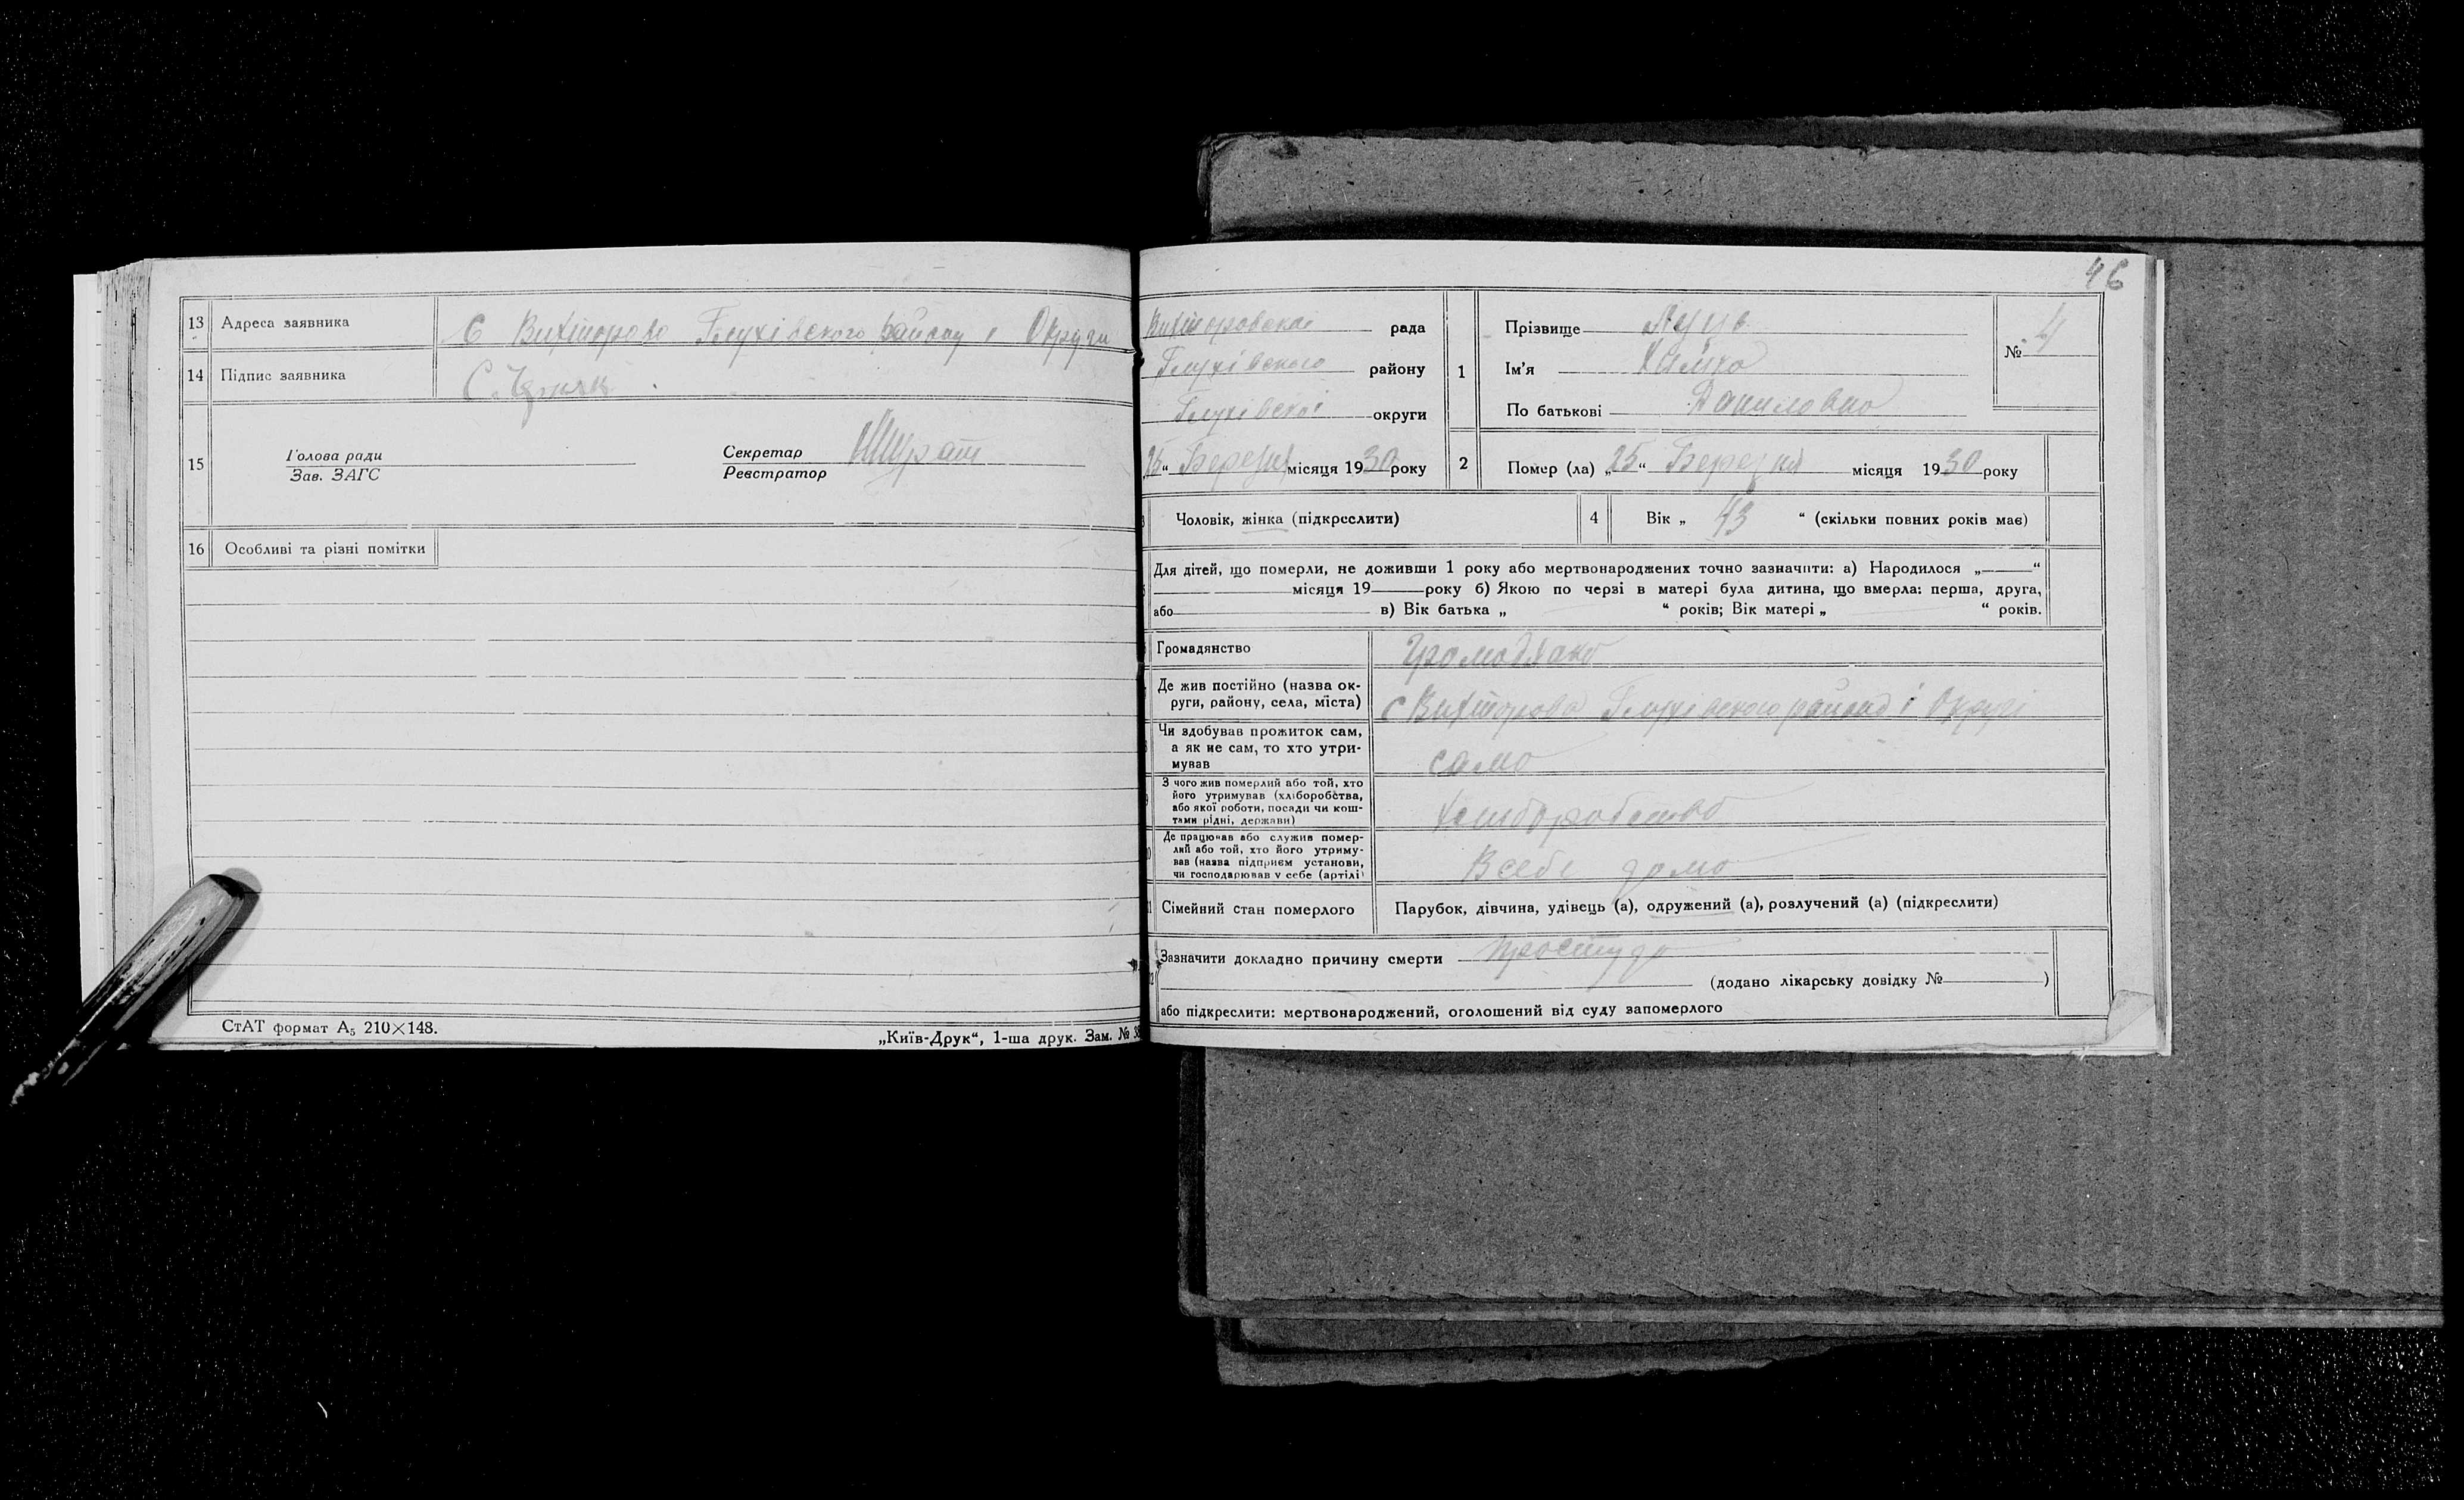 13 Адреса заявника С Вихторово Глухівского району і Округи
14 Підпис заявника С.
15 Голова ради Секретар
Зав. ЗАГС Реєстратор
16 Особливі та різні помітки
СтАТ формат А₅ 210×148.
„Київ-Друк“, 1-ша друк. Зам. № 38
46
Вихторовскої рада
Глухівского району
Глухівскої округи
25“ Березня місяця 1930 року
1 Прізвище
Ім'я
По батькові Даниловна
№ 4
2 Помер (ла) „25“ Березня місяця 1930 року
Чоловік, жінка (підкреслити)
4 Вік „ 43 “ (скільки повних років має)
Для дітей, що померли, не доживши 1 року або мертвонароджених точно зазначити: а) Народилося „ “
місяця 19 року б) Якою по черзі в матері була дитина, що вмерла: перша, друга,
або в) Вік батька „ “ років; Вік матері „ “ років.
Громадянство
Де жив постійно (назва ок-
руги, району, села, міста) с Вихторово Глухівского району і Округі
Чи здобував прожиток сам,
а як не сам, то хто утри-
мував само
З чого жив померлий або той, хто
його утримував (хліборобства,
або якої роботи, посади чи кош-
тами рідні, держави) Хлиборобство
Де працював або служив помер-
лий або той, хто його утриму-
вав (назва підприєм установи,
чи господарював у себе (артілі) Всебе дома
Сімейний стан померлого Парубок, дівчина, удівець (а), одружений (а), розлучений (а) (підкреслити)
Зазначити докладно причину смерти простуда
(додано лікарську довідку № )
або підкреслити: мертвонароджений, оголошений від суду запомерлого